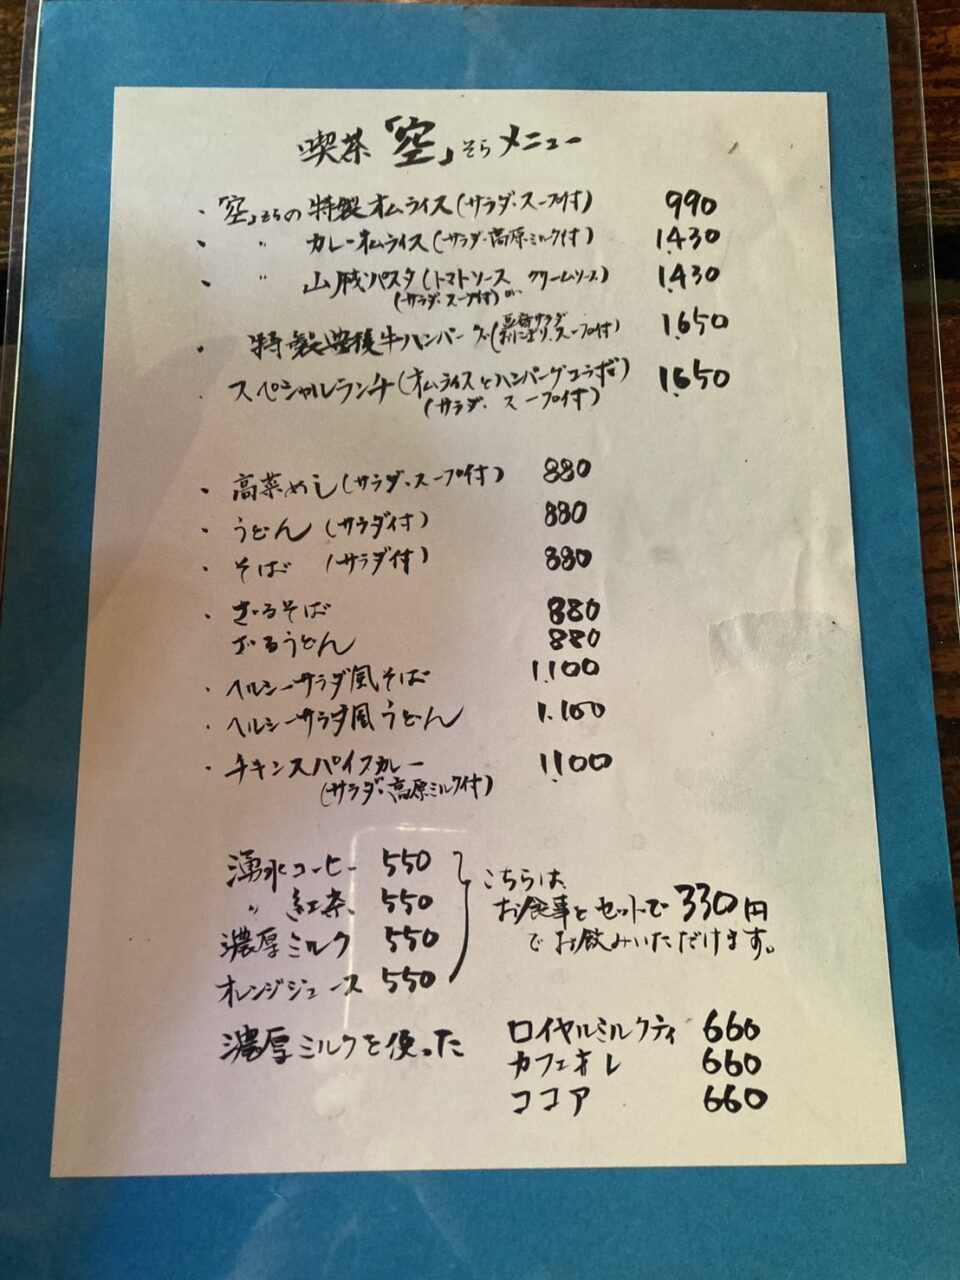 喫茶「空」そらメニュー
・「空」そらの特製オムライス(サラダ・スープ付) 990
・ 〃 カレーオムライス(サラダ・高原ミルク付) 1.430
・ 〃 山賊パスタ(トマトソース クリームソース) 1.430
(サラダ・スープ付) or
・ 特製豊後牛ハンバーグ(サラダ おにぎり、スープ付) 1.650
・ スペシャルランチ(オムライスとハンバーグコラボ) 1.650
(サラダ・スープ付)
・ 高菜めし(サラダ・スープ付) 880
・ うどん(サラダ付) 880
・ そば (サラダ付) 880
・ ざるそば 880
ざるうどん 880
・ ヘルシーサラダ風そば 1.100
・ ヘルシーサラダ風うどん 1.100
・ チキンスパイスカレー 1.100
(サラダ・高原ミルク付)
湧水コーヒー 550
〃 紅茶 550
濃厚ミルク 550
オレンジジュース 550
こちらは
お食事とセットで330円
でお飲みいただけます。
濃厚ミルクを使った
ロイヤルミルクティ 660
カフェオレ 660
ココア 660